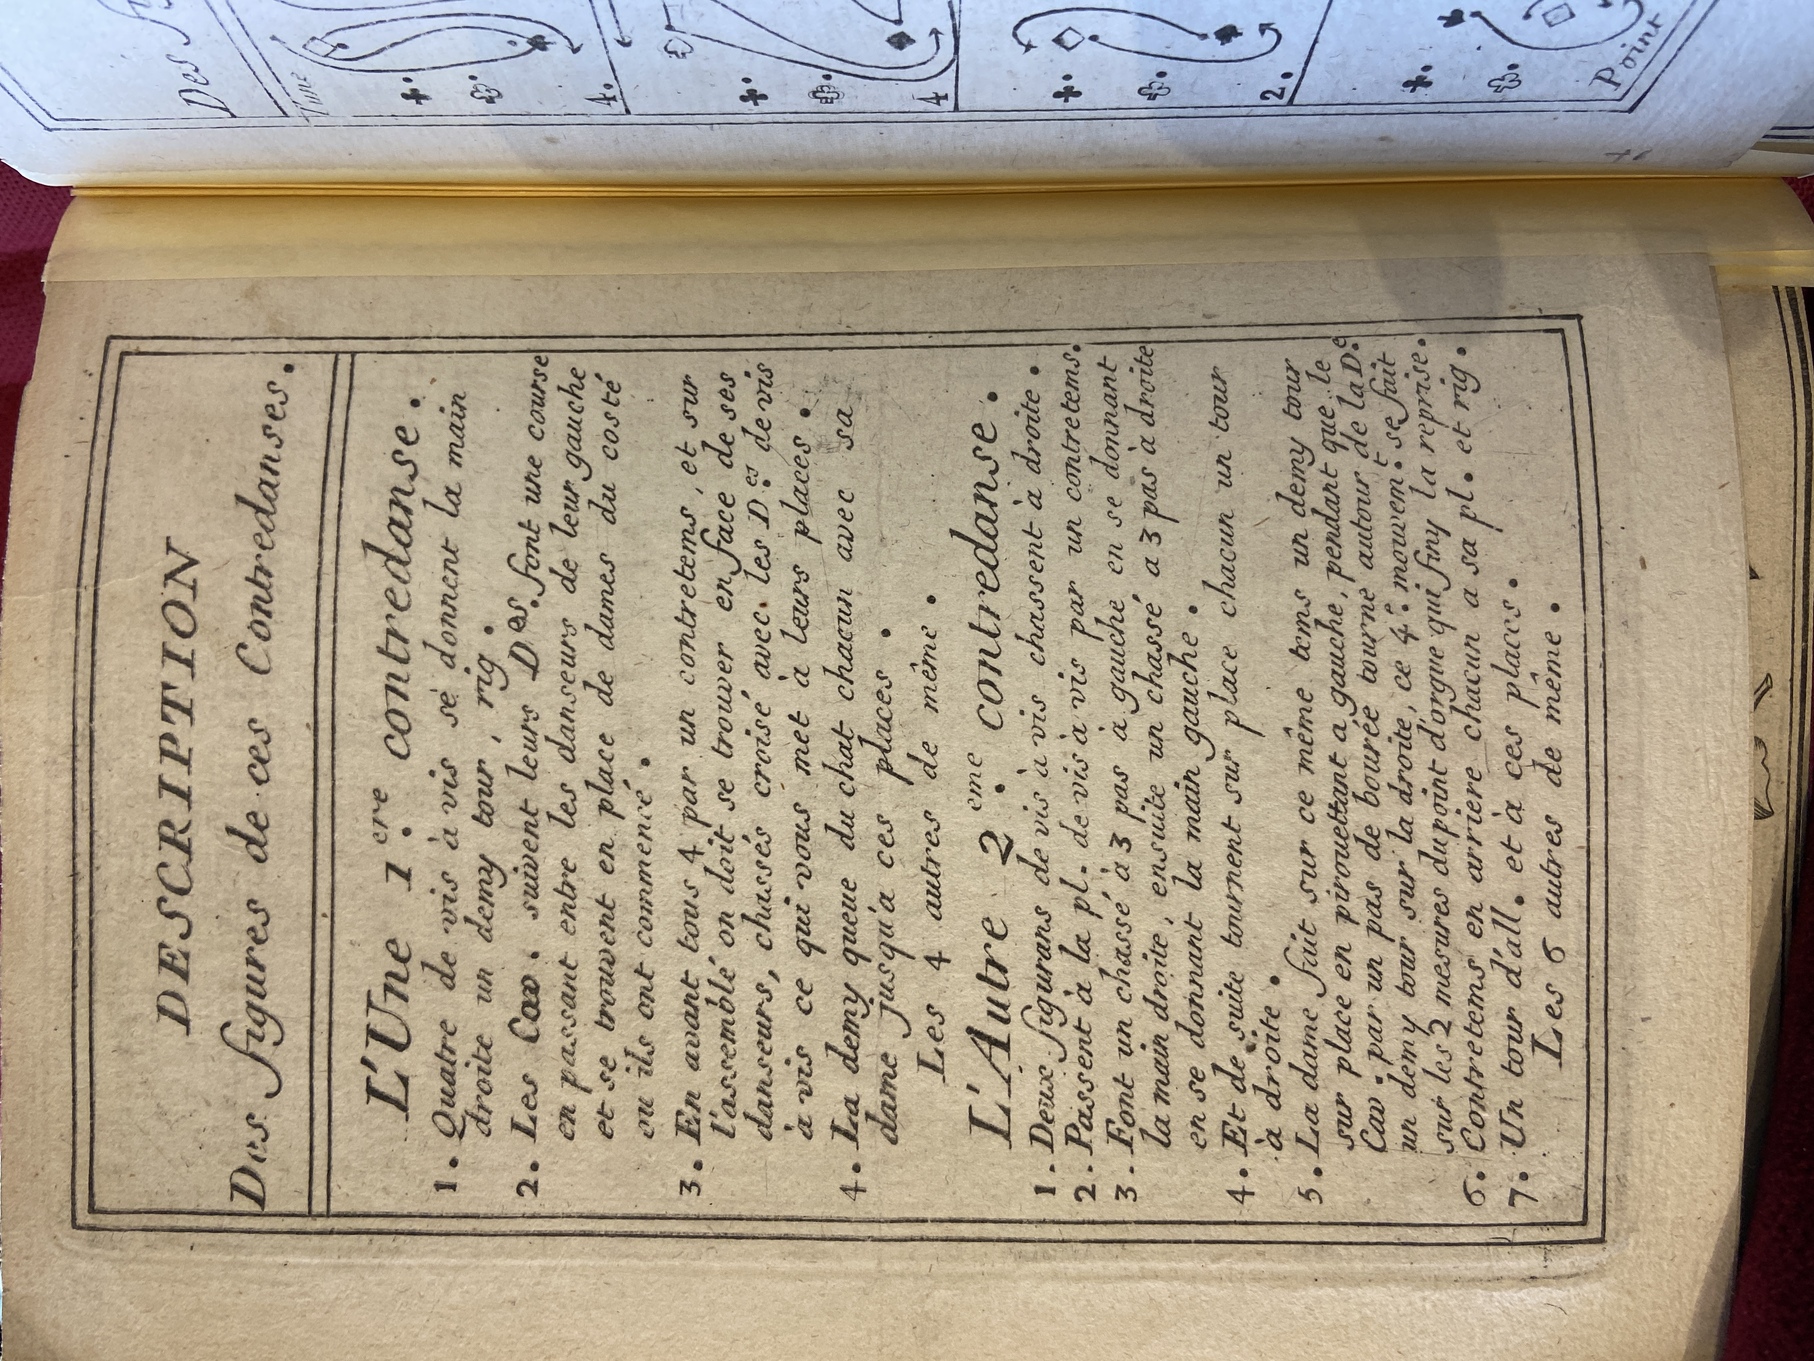 DESCRIPTION
Des figures de ces Contredanses.
L'Une 1.ere contredanse.
1. Quatre de vis à vis se donnent la main
droite un demy tour, rig.
2. Les Cav. suivent leurs D.es font une course
en passant entre les danseurs de leur gauche
et se trouvent en place de dames du costé
ou ils ont commencé.
3. En avant tous 4 par un contretems, et sur
l'assemblé on doit se trouver en face de ses
danseurs, chassés croisé avec les D.es de vis
à vis ce qui vous met à leurs places.
4. La demy queue du chat chacun avec sa
dame jusqu'a ces places.
Les 4 autres de même.
L'Autre 2.eme contredanse.
1. Deux figurans de vis à vis chassent à droite.
2. Passent à la pl. de vis à vis par un contretems.
3. Font un chassé à 3 pas à gauche en se donnant
la main droite, ensuite un chassé a 3 pas à droite
en se donnant la main gauche.
4. Et de suite tournent sur place chacun un tour
à droite.
5. La dame fait sur ce même tems un demy tour
sur place en pirouettant a gauche, pendant que le
Cav. par un pas de bourée tourne autour de la D.e
un demy tour sur la droite, ce 4.e mouvem.t se fait
sur les 2 mesures du point d'orgue qui finy la reprise.
6. Contretems en arriere chacun a sa pl. et rig.
7. Un tour d'all. et à ces places.
Les 6 autres de même.
Des
4.
4
2.
Point